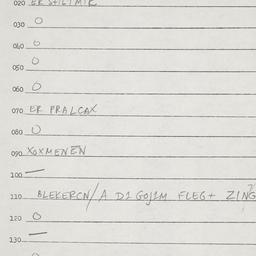 020 EK SHILTMIK
030 O
040 O
050 O
060 O
070 ER PRALCAX
080 O
090 XOXMENEN
100 —
110 BLEKERCN/A DI GOJIM FLEG+ ZING
120 O
130 —